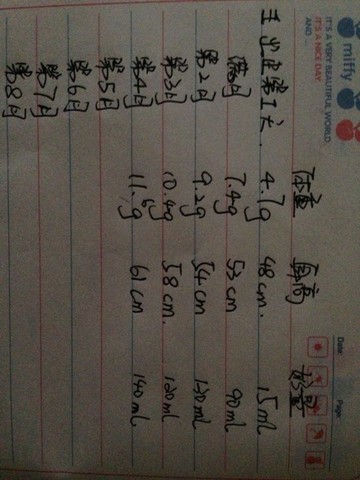 miffy
IT'S A VERY BEAUTIFUL WORLD.
IT'S A NICE DAY.
AND
Date:
Page:
体重 身高
出生第1天. 4.7g 48cm. 15ml
满月 7.4g 53cm 90ml
第2月 9.2g 54cm 120ml
第3月 10.4g 58cm. 120ml
第4月 11.6g 61cm 140ml
第5月
第6月
第7月
第8月